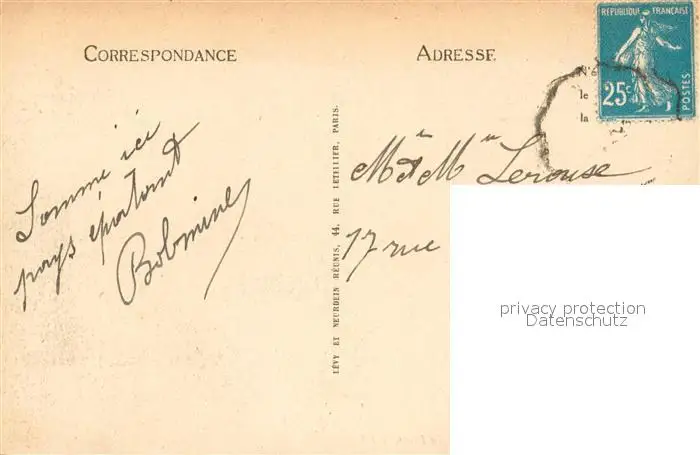 CORRESPONDANCE
ADRESSE
RÉPUBLIQUE FRANÇAISE
25c
POSTES
le
la
ici
pays épatant
LÉVY ET NEURDEIN RÉUNIS, 44, RUE LETELLIER, PARIS.
M & M Lerouse
17 rue
privacy protection
Datenschutz